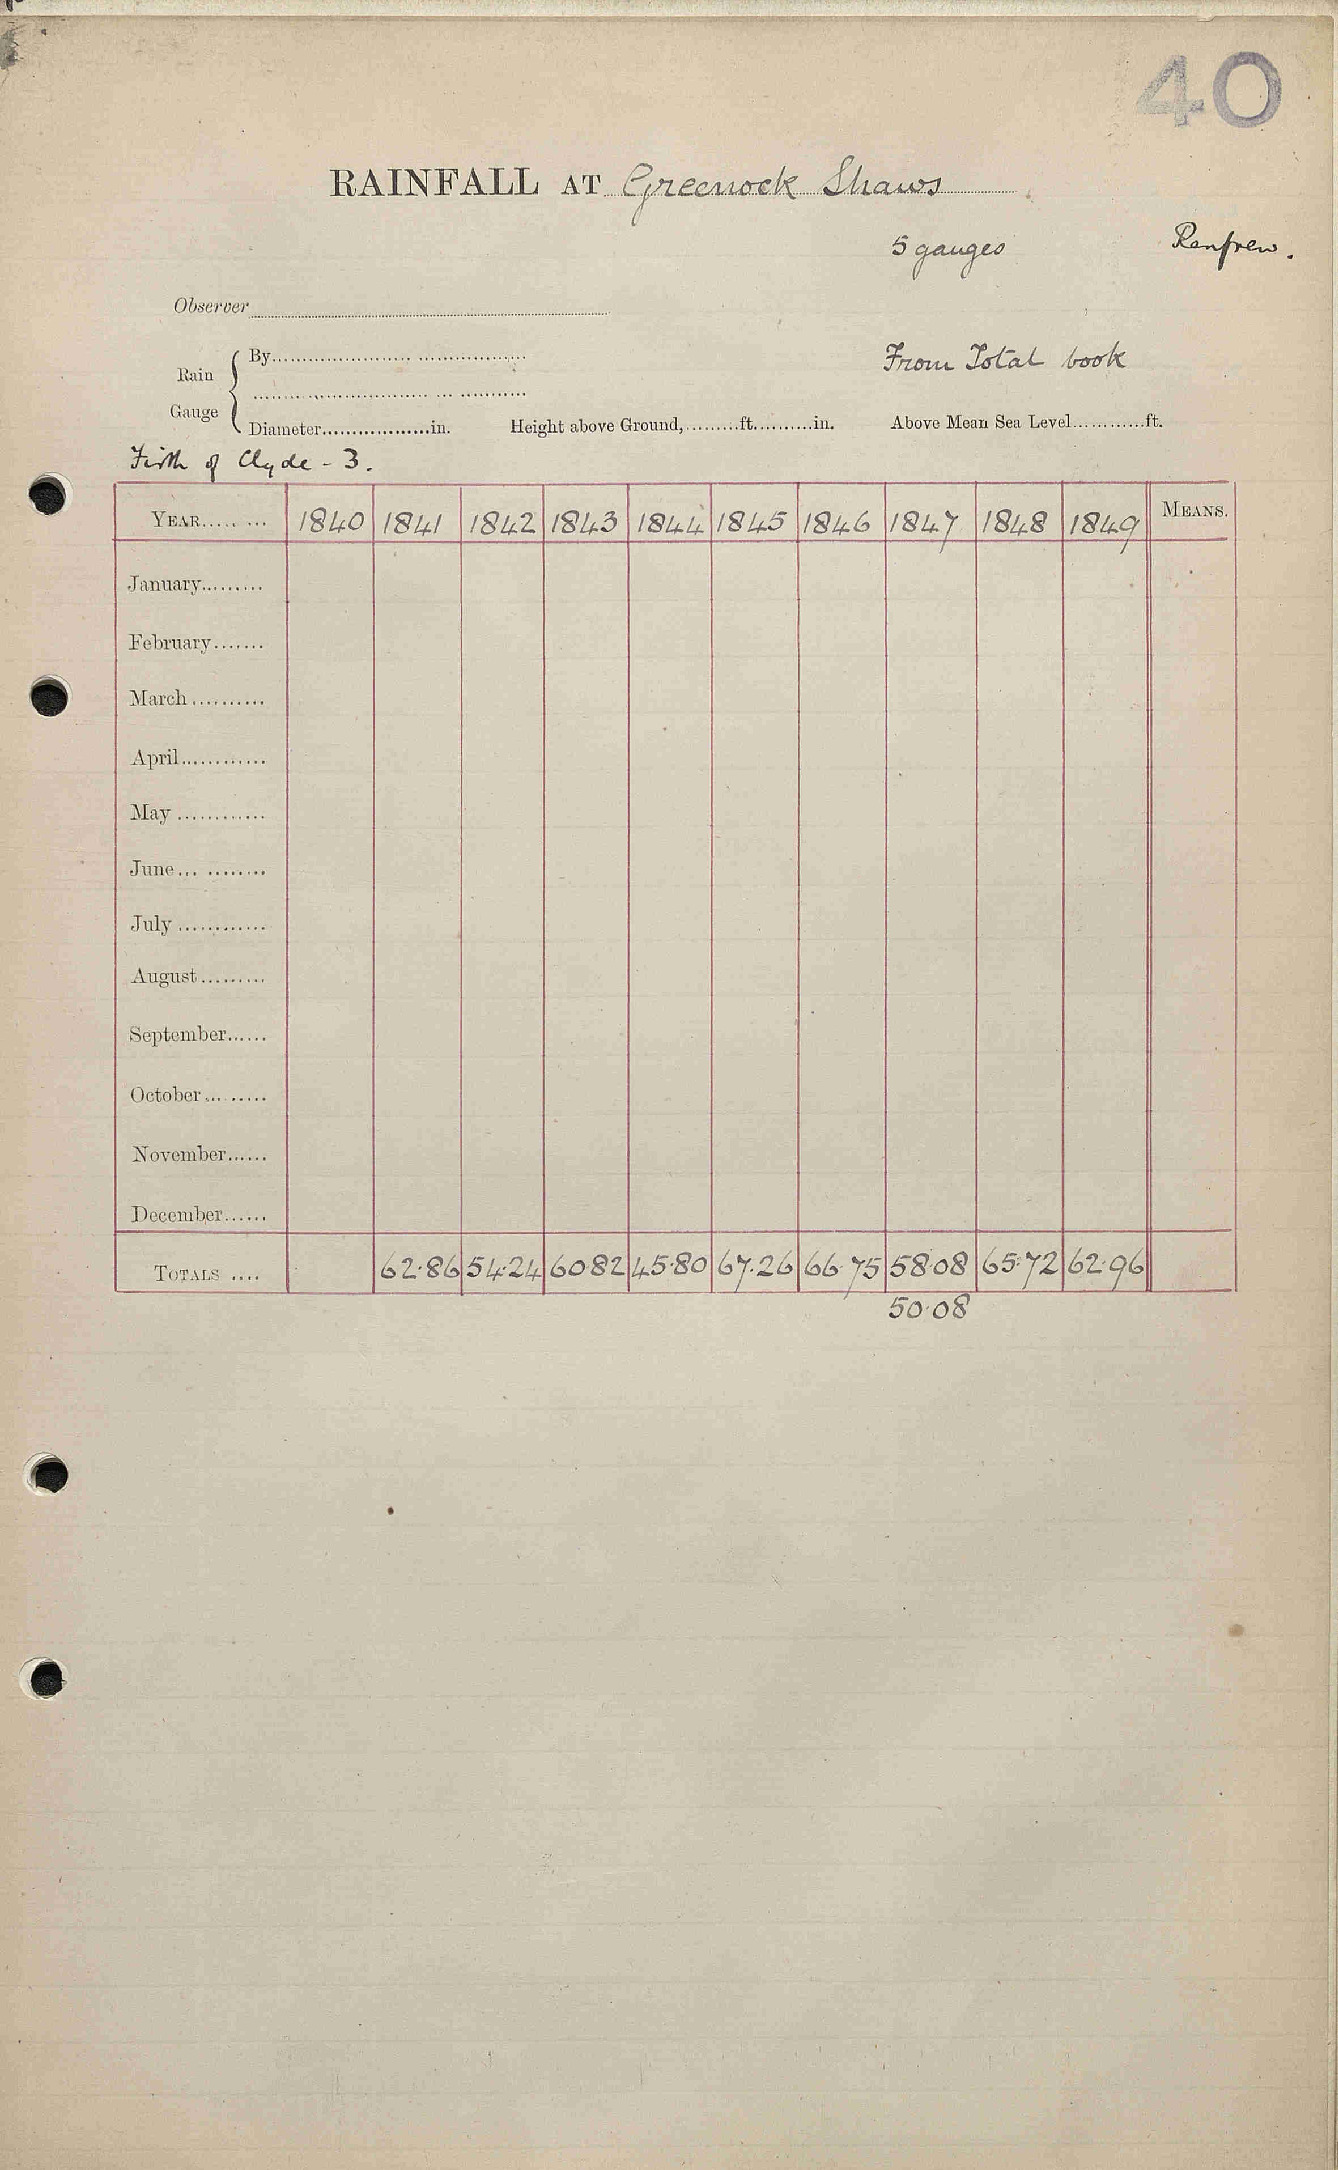 40
RAINFALL AT Greenock Shaws
5 gauges Renfrew.
Observer
Rain Gauge { By
From Total book
Diameter..................in. Height above Ground,.........ft..........in. Above Mean Sea Level............ft.
Firth of Clyde - 3.
YEAR........ 1840 1841 1842 1843 1844 1845 1846 1847 1848 1849 MEANS.
January.........
February.......
March..........
April............
May............
June............
July............
August.........
September......
October.........
November......
December......
TOTALS .... 62.86 54.24 60.82 45.80 67.26 66.75 58.08 65.72 62.96
50.08